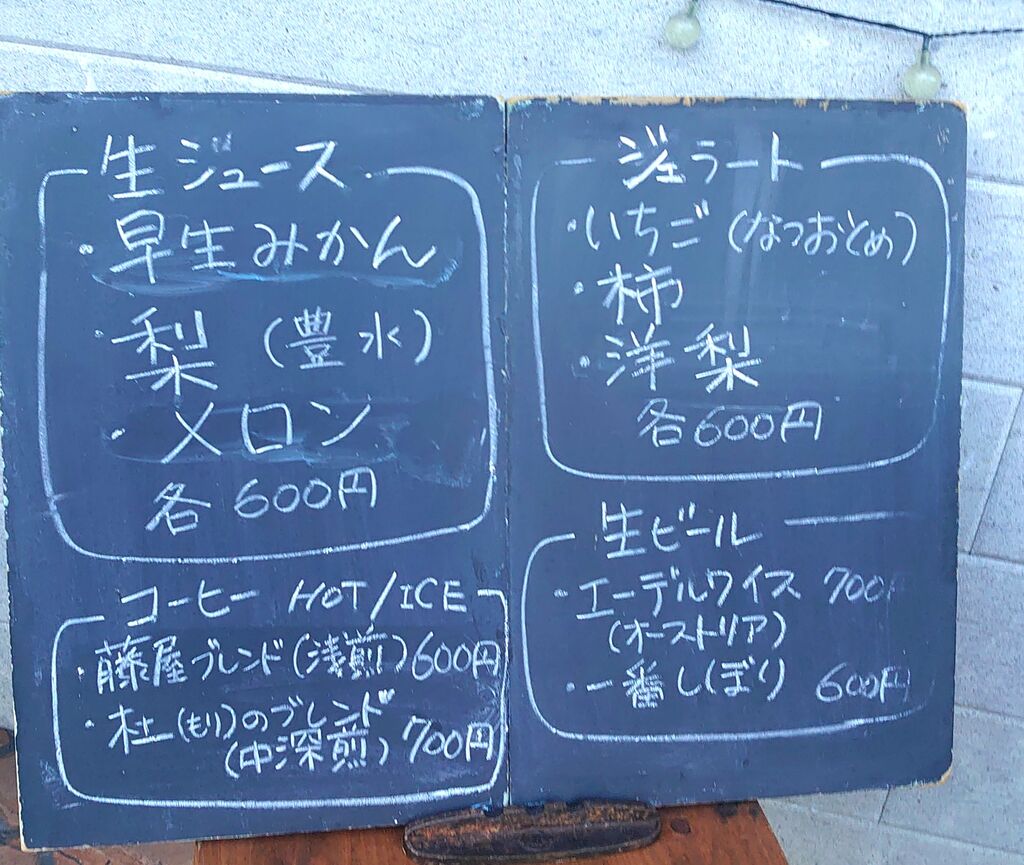 生ジュース
・早生みかん
・梨（豊水）
・メロン
各600円
コーヒー HOT/ICE
・藤屋ブレンド（浅煎）600円
・杜（もり）のブレンド
（中深煎）700円
ジェラート
・いちご（なつおとめ）
・柿
・洋梨
各600円
生ビール
・エーデルワイス 700円
（オーストリア）
・一番しぼり 600円